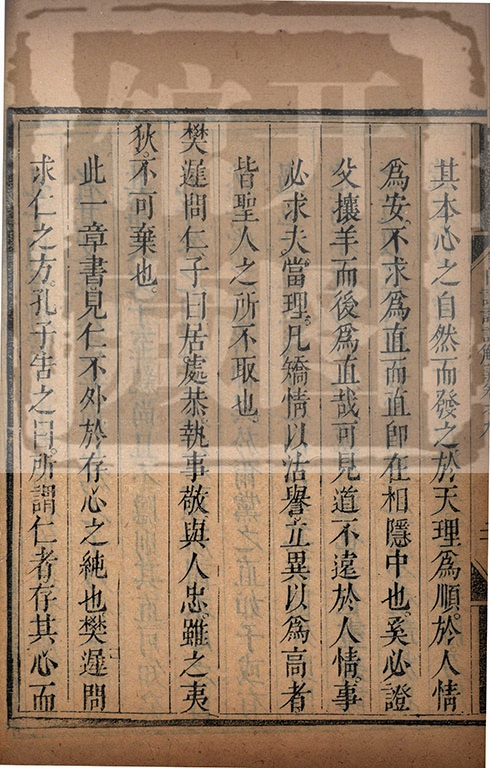 其本心之自然而發之於天理為順於人情
為安不求為直而直即在相隱中也奚必證
父攘羊而後為直哉可見道不遠於人情事
必求夫當理凡矯情以沽譽立異以為高者
皆聖人之所不取也
樊遲問仁子曰居處恭執事敬與人忠雖之夷
狄不可棄也
此一章書見仁不外於存心之純也樊遲問
求仁之方孔子告之曰所謂仁者存其心而